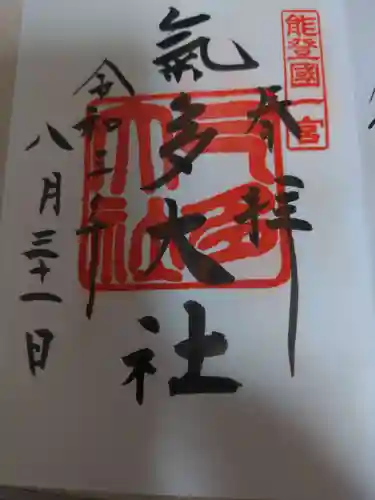 能登國一宮
奉拝
氣多大社
令和三年
八月三十一日
氣多大社